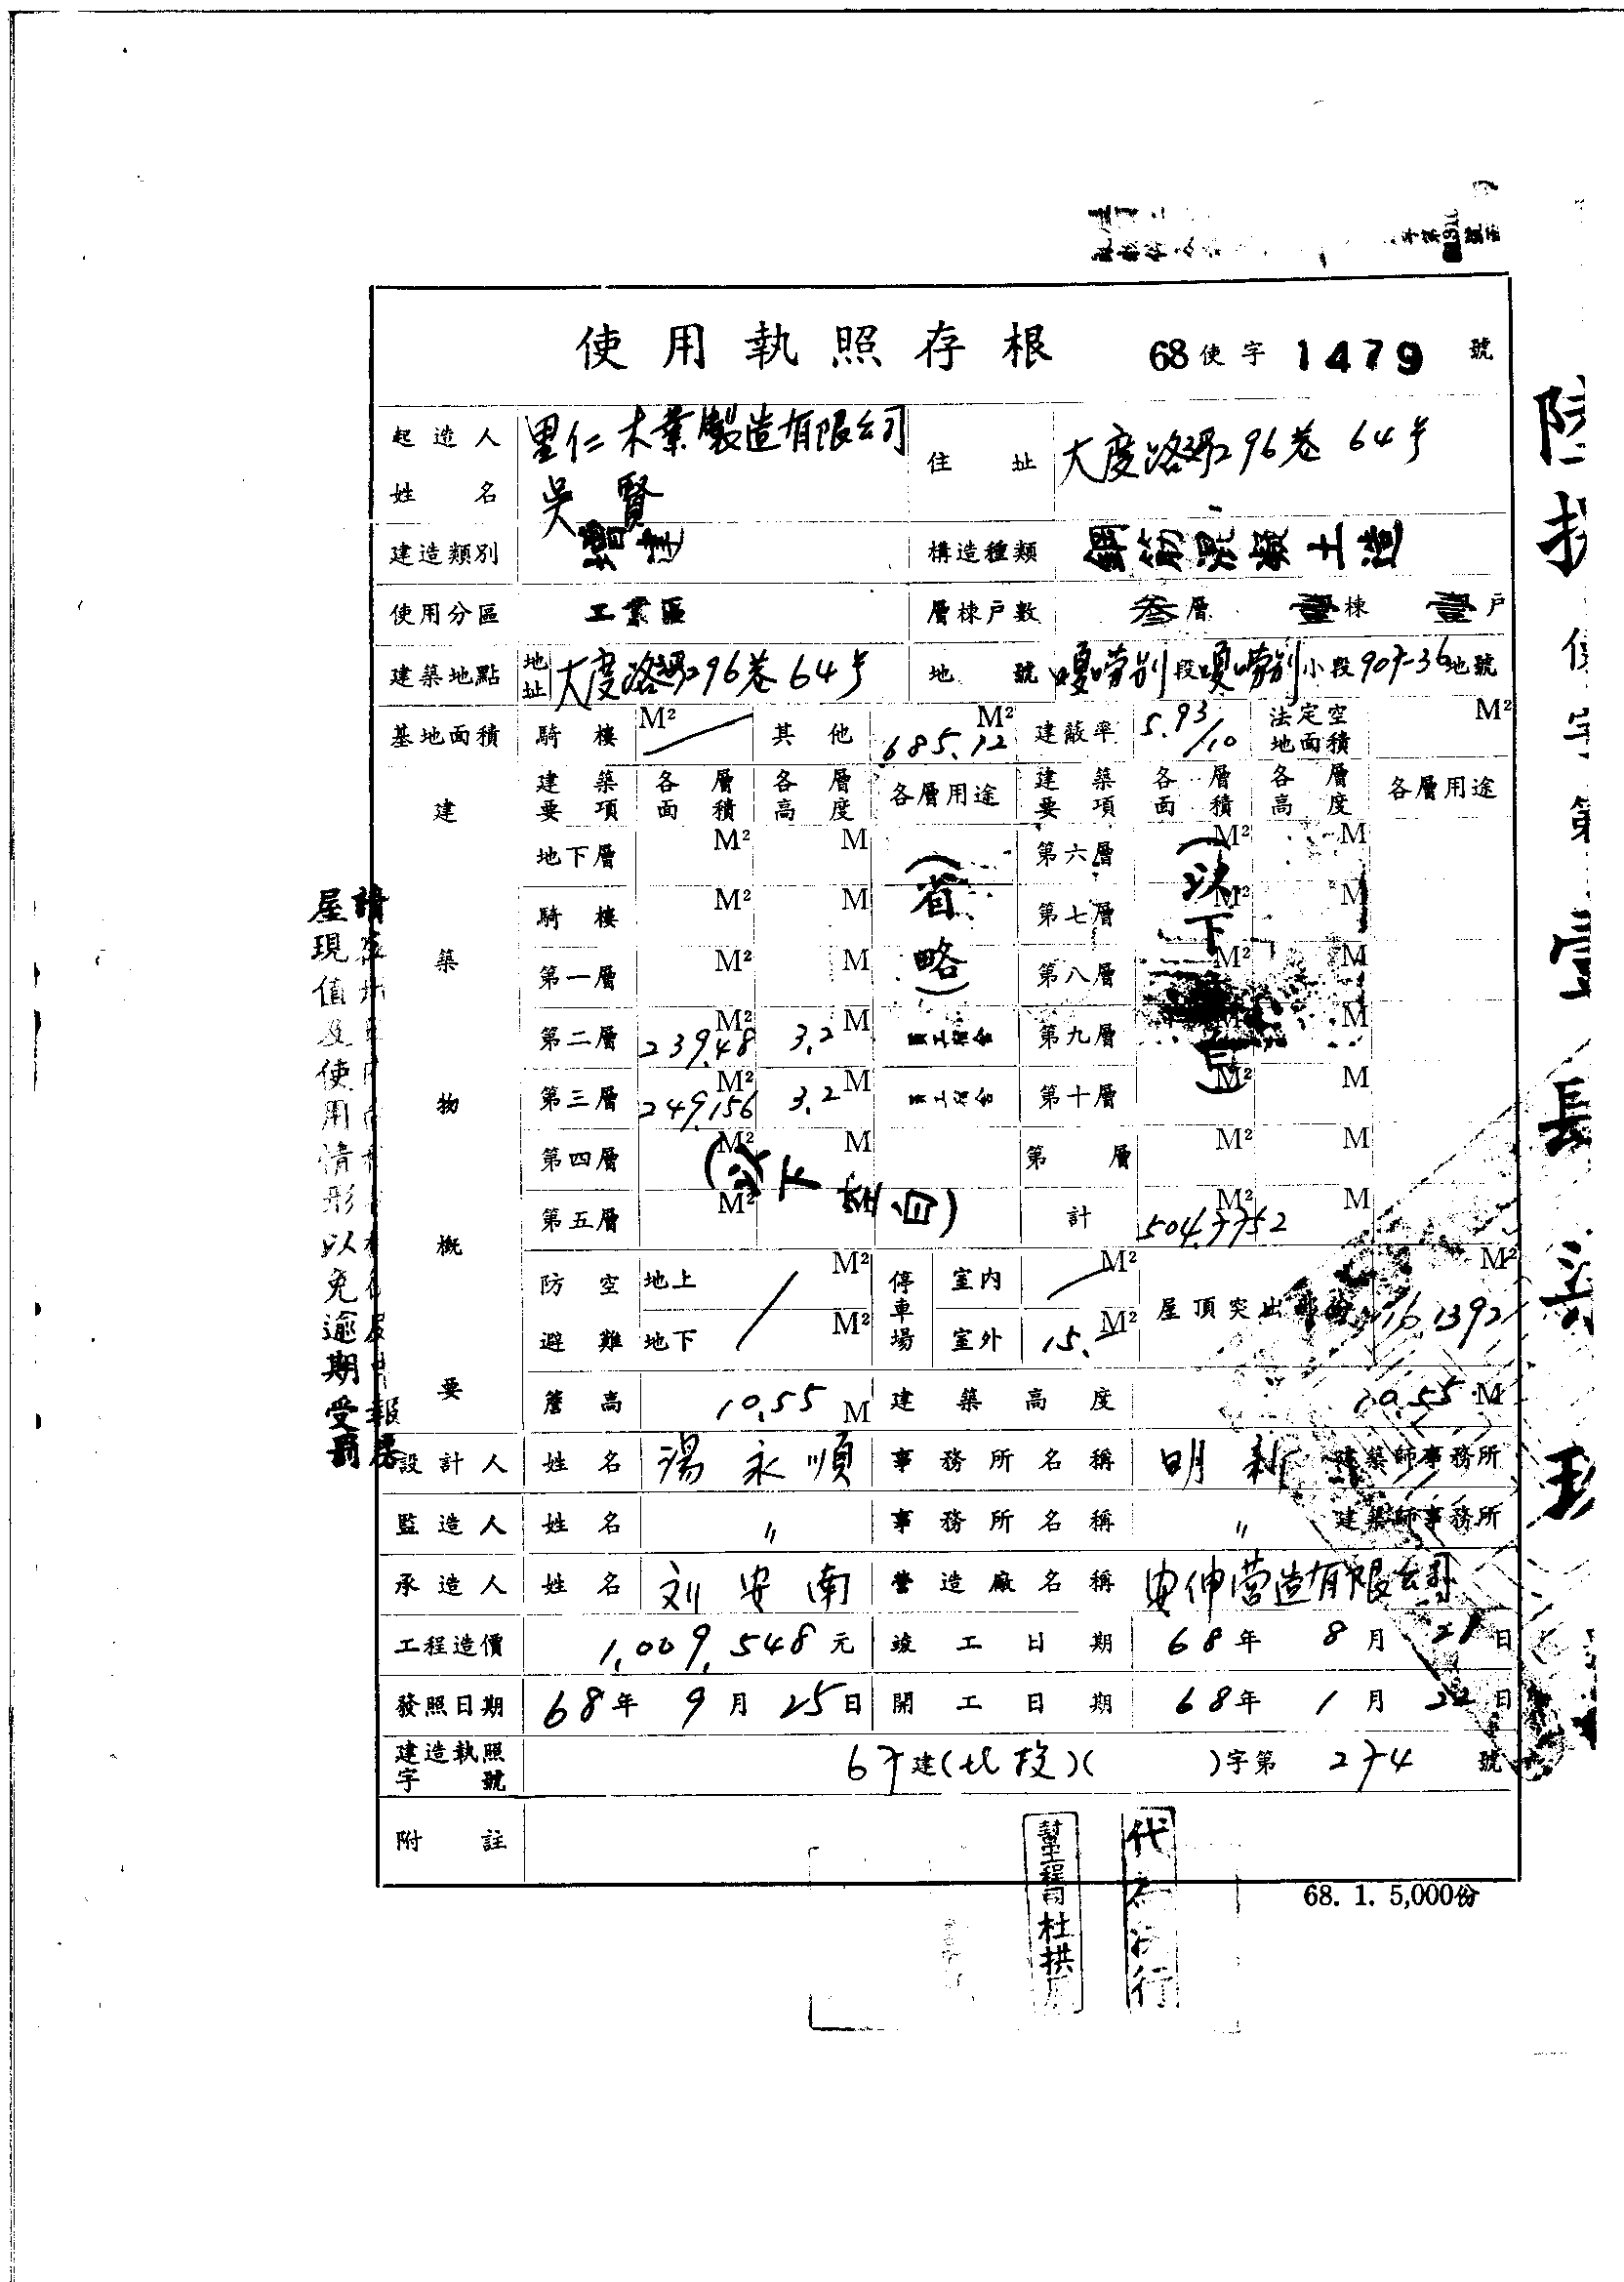 使用執照存根 68使字1479號
起造人姓名 里仁木業製造有限公司 吳賢 住址 大度路296巷64号
建造類別 增建 構造種類 鋼筋混凝土造
使用分區 工業區 層棟戶數 叁層 壹棟 壹戶
建築地點 地址 大度路296巷64号 地號 嗄嘮別段嗄嘮別小段907-36地號
基地面積 騎樓 M² 其他 685.12 M² 建蔽率 5.93/10 法定空地面積 M²
建築物概要
建築要項 各層面積 各層高度 各層用途 建築要項 各層面積 各層高度 各層用途
地下層 M² M (省略) 第六層 M² M (以下空白)
騎樓 M² M 第七層 M² M
第一層 M² M 第八層 M² M
第二層 239.48 M² 3.2 M 第九層 M² M
第三層 249.156 M² 3.2 M 第十層 M² M
第四層 M² M (以下空白) 第 層 M² M
第五層 M² M 計 504.7752 M² M
防空避難 地上 M² 停車場 室內 M² 屋頂突出部份 16.1392 M²
地下 M² 室外 15.- M²
簷高 10.55 M 建築高度 10.55 M
設計人 姓名 湯永順 事務所名稱 明新建築師事務所
監造人 姓名 〃 事務所名稱 〃 建築師事務所
承造人 姓名 刘安南 營造廠名稱 安伸营造有限公司
工程造價 1,009,548元 竣工日期 68年8月21日
發照日期 68年9月25日 開工日期 68年1月22日
建造執照字號 67建(北投)( )字第274號
附註
68. 1. 5,000份
屋現值及使用情形以免逾期受罰
代 行